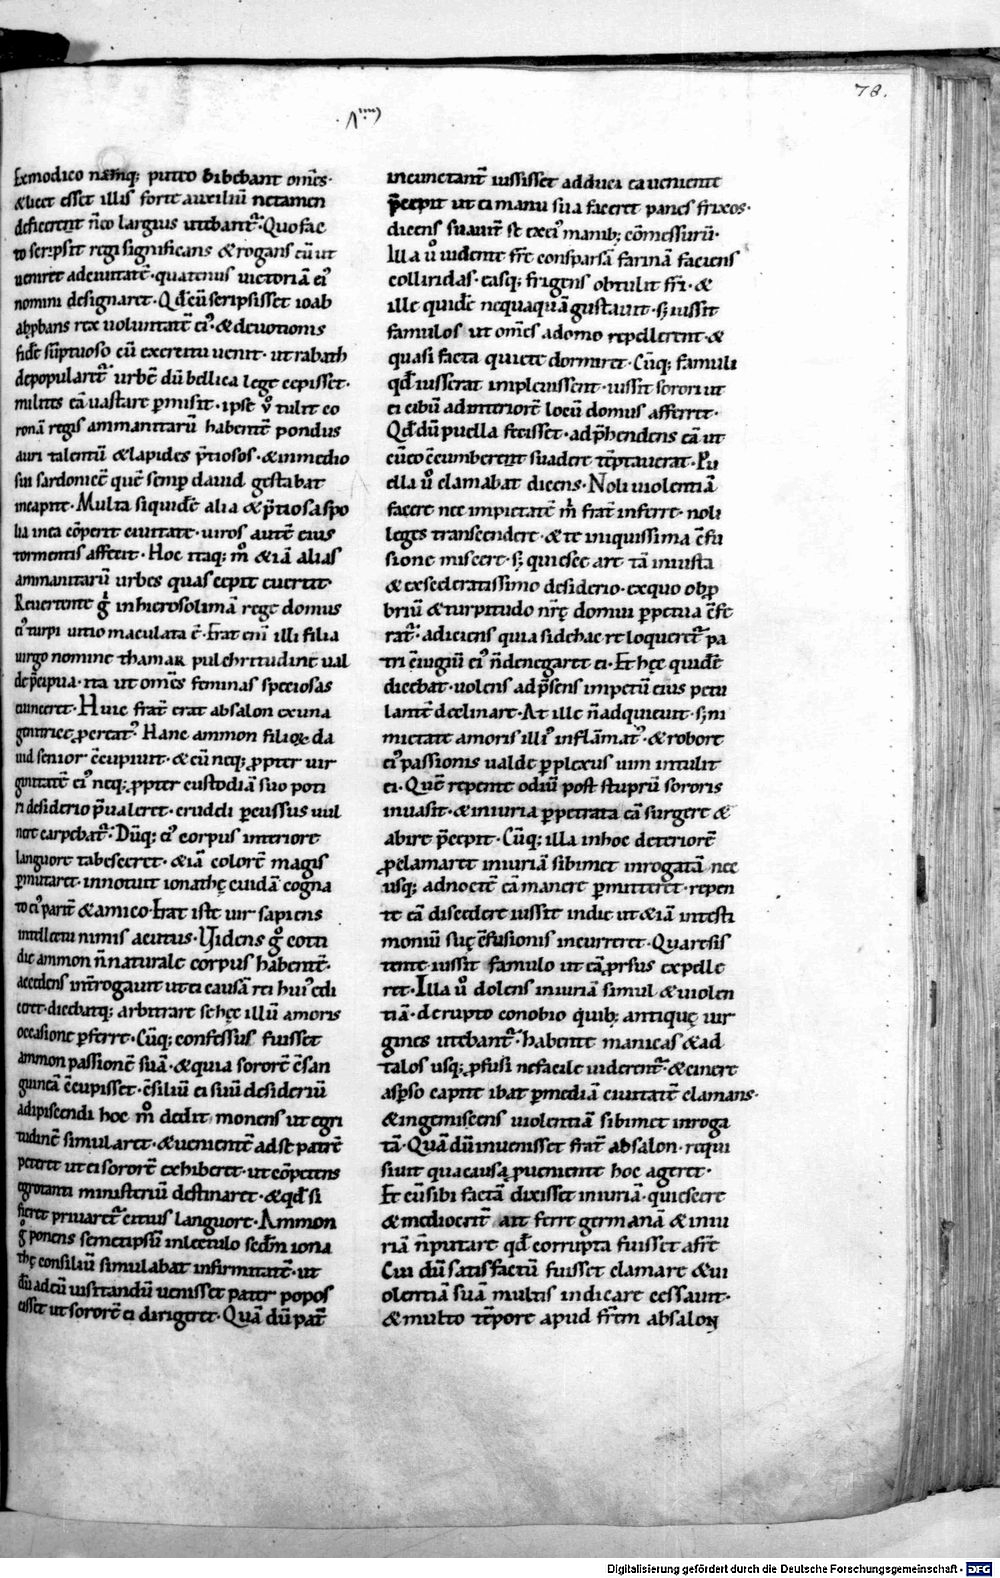 78.
·VIIII·
Exmodico namq; puteo bibebant om̄s·
&licet esset illis forte auxiliū netamen
deficerent n̄eo largius utebant᷑· Quofac
to scripsit regi significans &rogans eū ut
ueniret adeiuitatē· quatenus uictoriā ei᷒
nomini designaret· Qd̄eū scripsisset ioab
ahpbans rex uoluntatē ei᷒· &deuotionis
fidē sūptuoso cū exercitu uenit· ut rabath
depopularet᷑ urbē dū bellica lege cepisset·
milites eā uastare ꝑmisit· ipse v̊ tulit co
ronā regis ammanitarū habentē pondus
auri talentū &lapides p̄tiosos· &inmedio
sui sardonicē quē semꝑ dauid gestabat
incapite· Multa siquidē alia &p̄tiosa spo
lia inea cōperit ciuitate· uiros autē eius
tormentis affecit· Hoc itaq; m̊ &iā alias
ammanitarū urbes quas cepit euertit·
Reuertente g̊ inhierosolimā rege domus
ei᷒ turpi uitio maculata ē· Erat eni illi filia
uirgo nomine thamar pulchritudine ual
de p̄cipua· ita ut om̄s feminas speciosas
uinceret· Huic frat̄ erat absalon exuna
genitrice ꝓcreat᷒ Hanc ammon filioꝝ da
uid senior c̄cupiuit· &cū neq; ꝓpter uir
ginitatē ei᷒ neq; ꝓpter custodiā suo poti
ri desiderio p̄ualeret· crudeli ꝑcussus uul
nere carpebat᷑· Dūq; ei᷒ corpus interiore
languore tabesceret· &iā colorē magis
ꝑmutaret· innotuit ionathę cuidā cogna
to ei᷒ parit̄ &amico· Erat iste uir sapiens
intellectu nimis acutus· Videns g̊ coti
die ammon n̄naturale corpus habentē·
accedens int̄rogauit ut ei causā rei hui᷒ edi
ceret· dicebatq; arbitrare sehęc illū amoris
occasione ꝑferre· Cūq; confessus fuisset
ammon passionē suā· &quia sororē c̄san
guineā c̄cupisset· c̄siliū ei suū desideriū
adipiscendi hoc m̊ dedit monens ut egri
tudinē simularet· &uenientē adse patrē
peteret ut ei sororē exhiberet· ut cōpetens
egrotanti ministeriū destinaret· &qd̄ si
fieret priuaret᷑ citius languore· Ammon
g̊ ponens semetipsū inlectulo sedm iona
thę consiliū simulabat infirmitatē· ut
dū adeū uisitandū uenisset pater popos
cisset ut sororē ei dirigeret· Quā dū pat̄
incunctant̄ iussisset adduci ea ueniente
p̄cepit ut ei manu sua faceret panes frixos·
dicens suauit̄ se exei᷒ manib; cōmessurū·
Illa v̊ uidente fr̄e consparsā farinā faciens
colliridas· easq; frigens obtulit fr̄i· &
ille quidē nequaquā gustauit· sꝫ iussit
famulos ut om̄es adomo repellerent· &
quasi facta quiete dormiret· Cūq; famuli
qd̄ iusserat impleuissent· iussit sorori ut
ei cibū adinteriorē locū domus afferret·
Qd̄ dū puella fecisset· adp̄hendens eā ut
cūeo c̄cumberent suadere tēptauerat· Pu
ella v̊ clamabat dicens· Noli uiolentiā
facere nec impietatē m̄ frat̄ inferre· noli
leges transcendere· &te iniquissima c̄fu
sione miscere· sꝫ quiesce a re tā iniusta
&exsceleratissimo desiderio· exquo obꝓ
briū &turpitudo nr̄ę domui ꝑpetua c̄fe
rat᷑· adiciens quia sidehac re loqueret᷑ pa
tri c̄iugiū ei᷒ n̄denegaret ei· Et hęc quidē
dicebat· uolens adp̄sens impetū eius petu
lantē declinare· At ille n̄adquieuit· sꝫni
mietate amoris illi᷒ inflāmat᷒· &robore
ei᷒ passionis ualde ꝑplexus uim intulit
ei· Quē repente odiū post stuprū sororis
inuasit· &iniuria ꝑpetrata eā surgere &
abire p̄cepit· Cūq; illa inhoc deteriorē
ꝓclamaret iniuriā sibimet inrogatā nec
usq; adnoctē eā manere ꝑmitteret· repen
te eā discedere iussit indie ut &iā intesti
moniū suę c̄fusionis incurreret· Quaresis
tente iussit famulo ut eā ꝓrsus expelle
ret· Illa v̊ dolens iniuriā simul &uiolen
tiā· derupto conobio quib; antiquę uir
gines utebant᷑· habente manicas &ad
talos usq; ꝓfusi nefacile uiderent᷑· &cinere
asꝑso capite ibat ꝑmediā ciuitatē clamans·
&ingemiscens uiolentiā sibimet inroga
tā· Quā dū inuenisset frat̄ absalon· requi
siuit qua causa ꝓueniente hoc ageret·
Et cū sibi factā dixisset iniuriā· quiescere
&mediocrit̄ ait ferre germanā &iniu
riā n̄putare qd̄ corrupta fuisset afr̄e
Cui dū satisfactū fuisset clamare &ui
olentiā suā multis indicare cessauit·
&multo tēpore apud fr̄em absalon
Digitalisierung gefördert durch die Deutsche Forschungsgemeinschaft - DFG